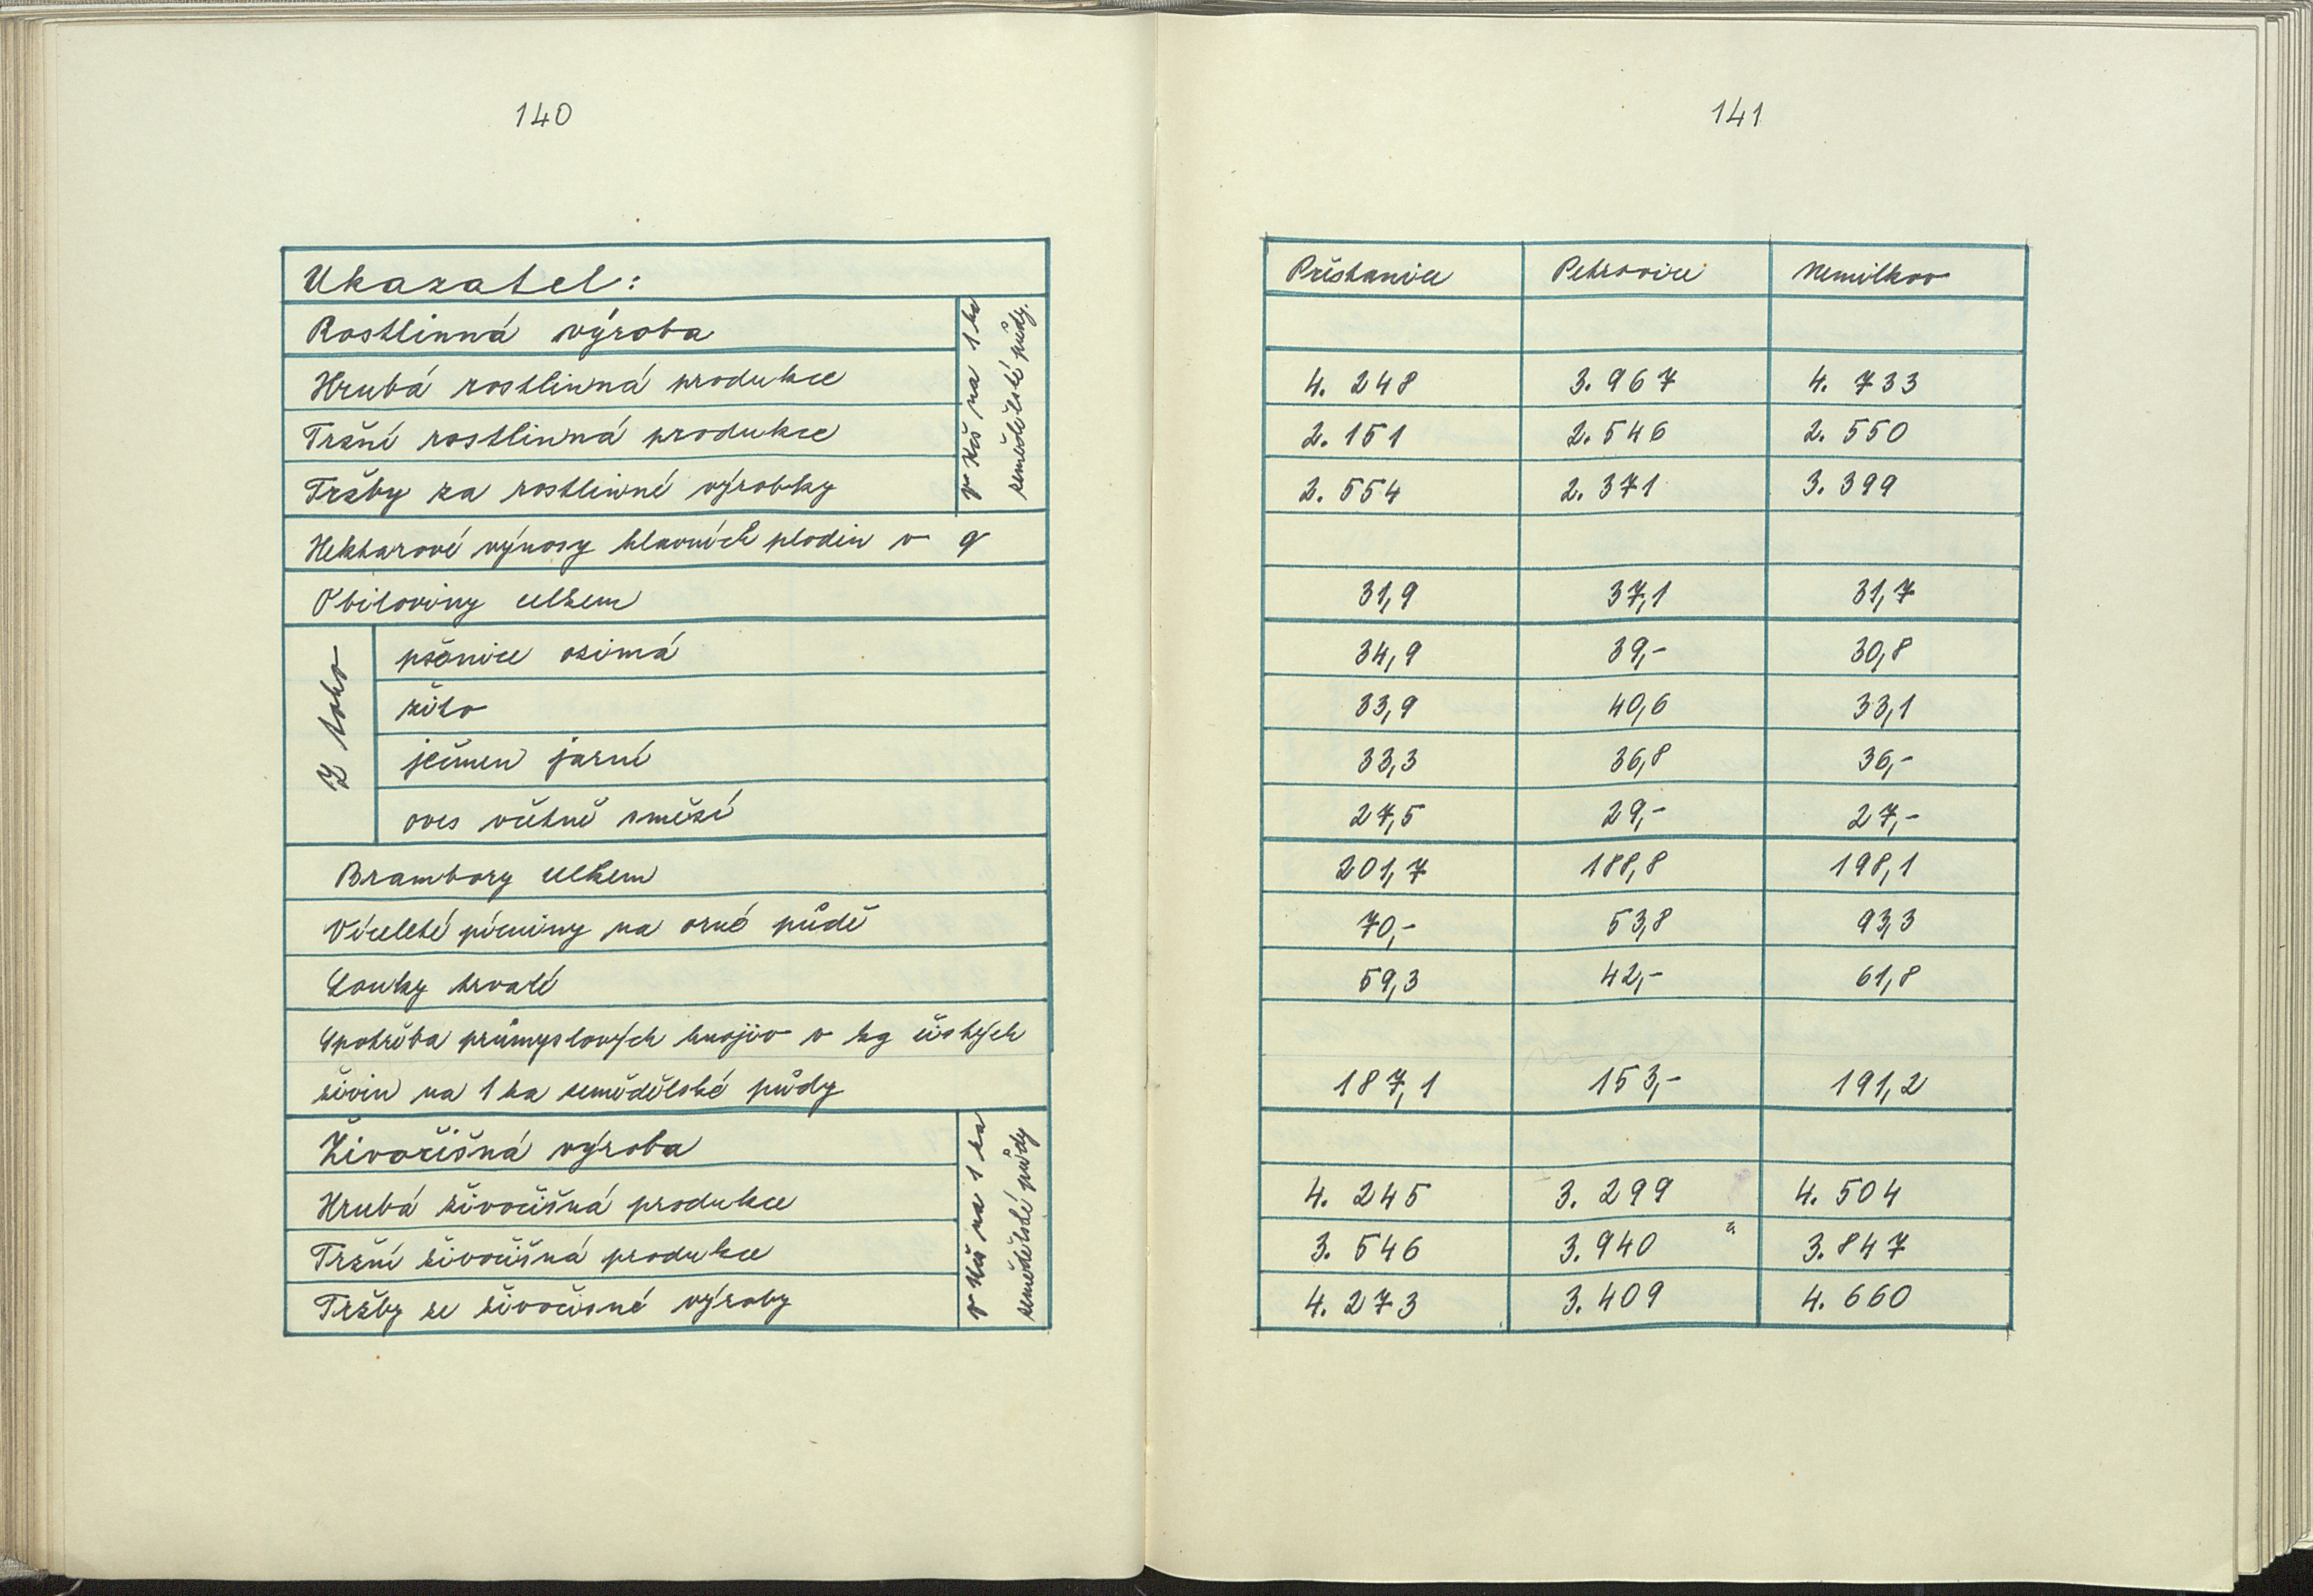 140
Ukazatel:
Rostlinná výroba
Hrubá rostlinná produkce
Tržní rostlinná produkce
Tržby za rostlinné výrobky
v Kčs na 1 ha
zemědělské půdy.
Hektarové výnosy hlavních plodin v q
Obiloviny celkem
Z toho
pšenice ozimá
žito
ječmen jarní
oves včetně směsí
Brambory celkem
Víceleté pícniny na orné půdě
Louky trvalé
Spotřeba průmyslových hnojiv v kg čistých
živin na 1 ha zemědělské půdy
Živočišná výroba
Hrubá živočišná produkce
Tržní živočišná produkce
Tržby ze živočisné výroby
v Kčs na 1 ha
zemědělské půdy
141
Přestanice Petrovice Nemilkov
4. 248 3. 967 4. 733
2. 151 2. 546 2. 550
2. 554 2. 371 3. 399
31,9 37,1 31,7
34,9 39,- 30,8
33,9 40,6 33,1
33,3 36,8 36,-
27,5 29,- 27,-
201,7 188,8 198,1
70,- 53,8 93,3
59,3 42,- 61,8
187,1 153,- 191,2
4. 245 3. 299 4. 504
3. 546 3. 940 3. 847
4. 273 3. 409 4. 660